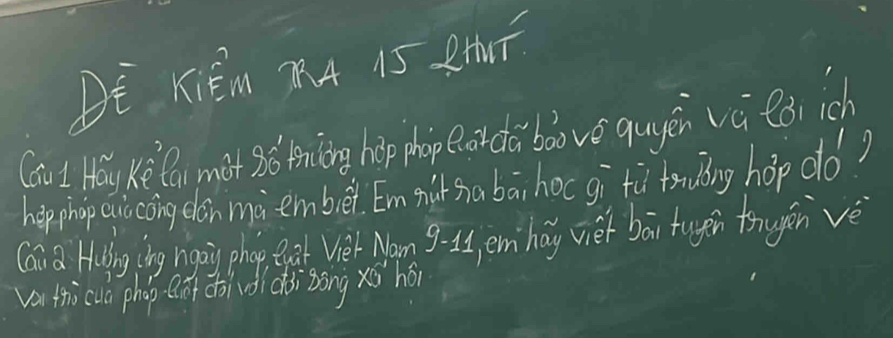 ĐỀ KIỂM TRA 15 PHÚT
Câu 1 Hãy Kể lại một số trường hợp pháp luật đã bảo vệ quyền và lợi ích
hợp pháp của công dân mà em biết. Em rút ra bài học gì từ trường hợp đó?
Câu 2 Hưởng ứng ngày pháp luật Việt Nam 9-11, em hãy viết bài tuyên truyền về
vai trò của pháp luật đối với đời sống xã hội